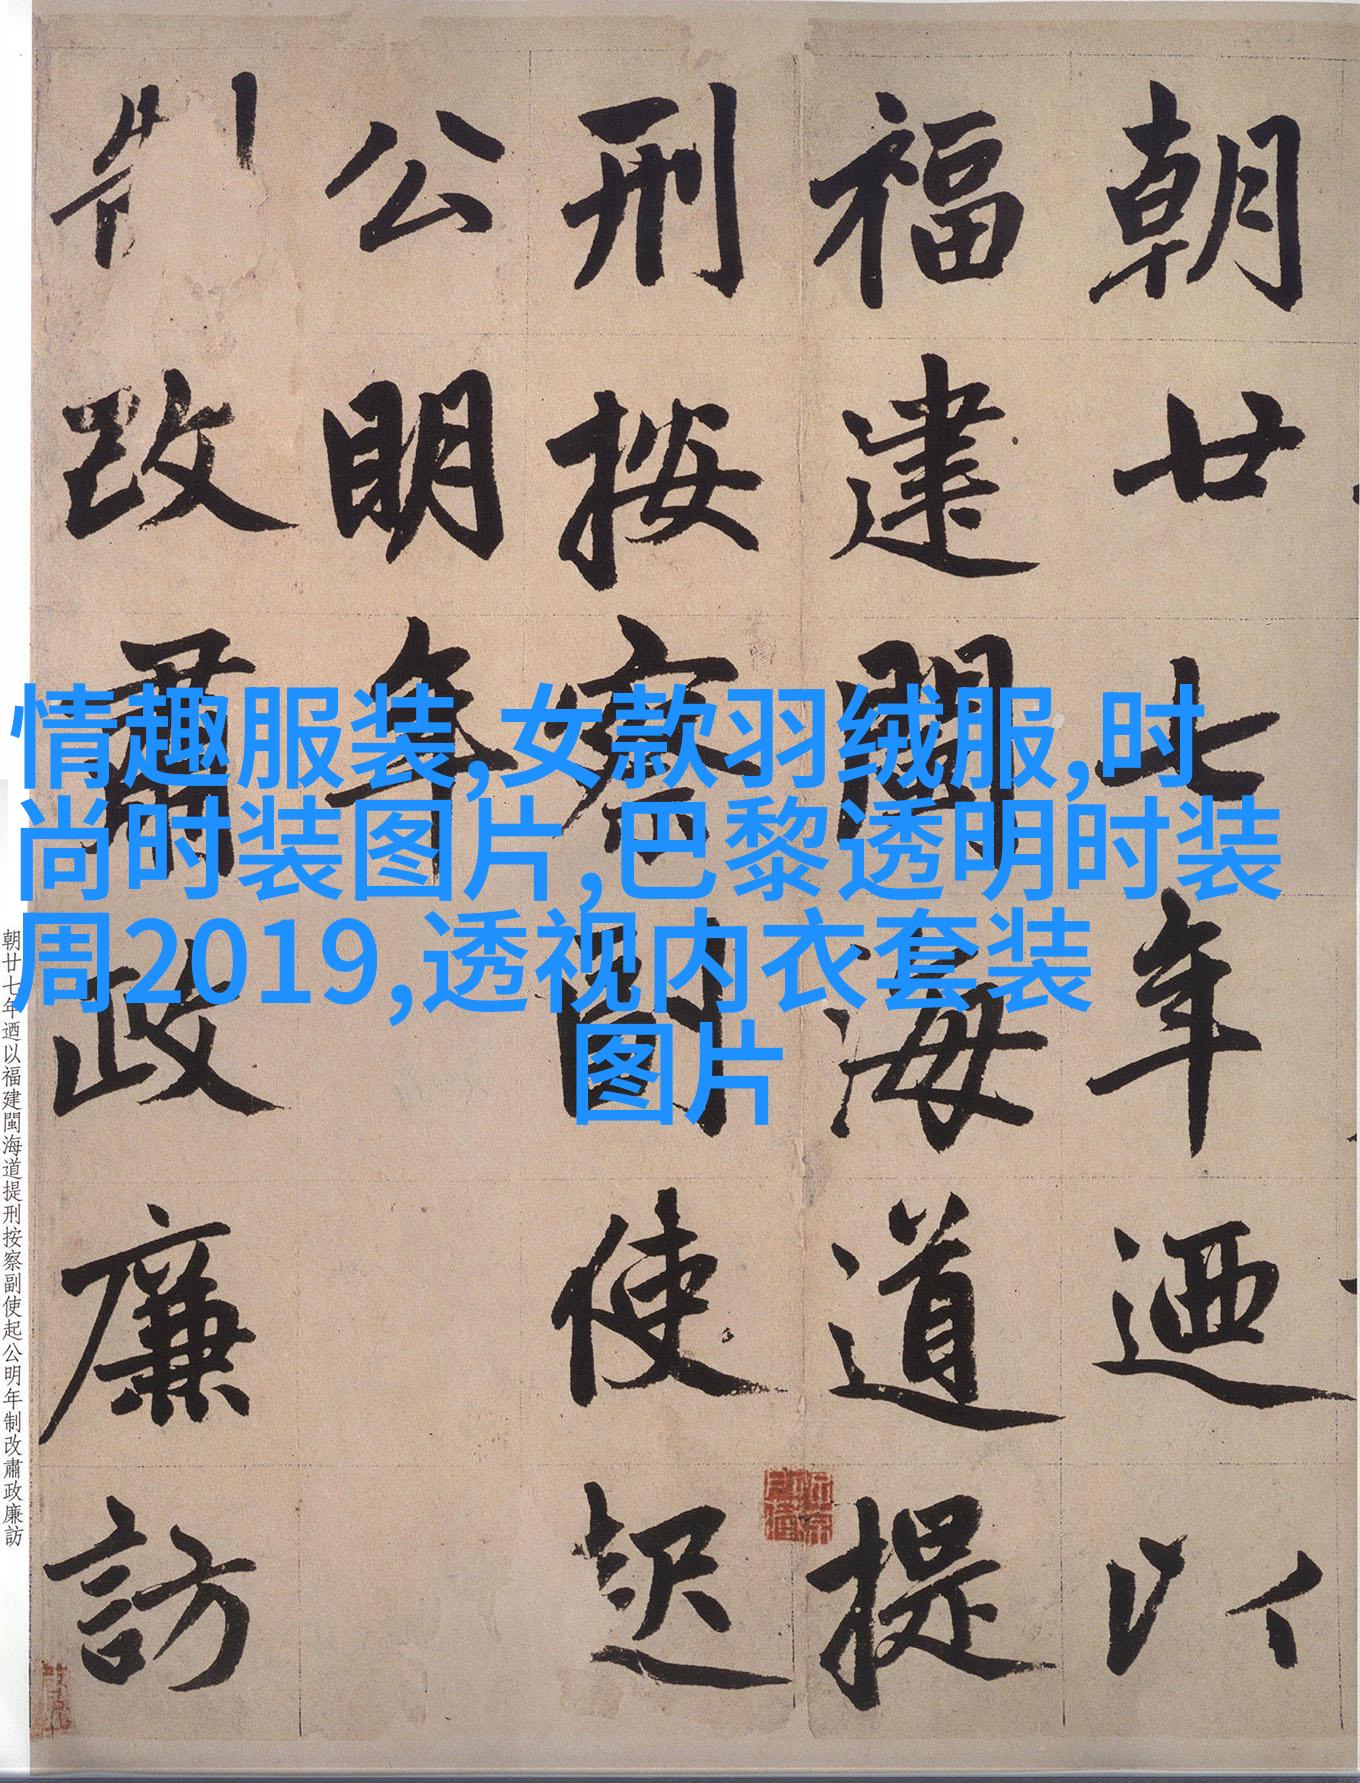 朝廿七年迺以
福建閩海道提
刑按察副使起
公明年
制改肅政廉訪
情趣服装,女款羽绒服,时
尚时装图片,巴黎透明时装
周2019,透视内衣套装
图片
朝廿七年迺以福建閩海道提刑按察副使起公明年制改肅政廉訪